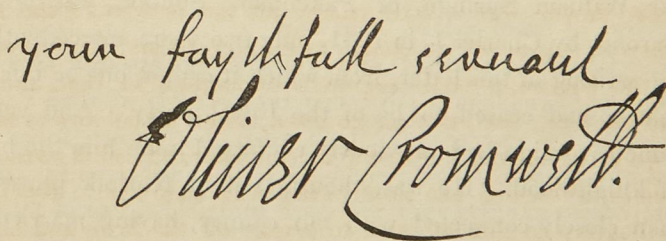 your faythfull servant
Oliver Cromwell.